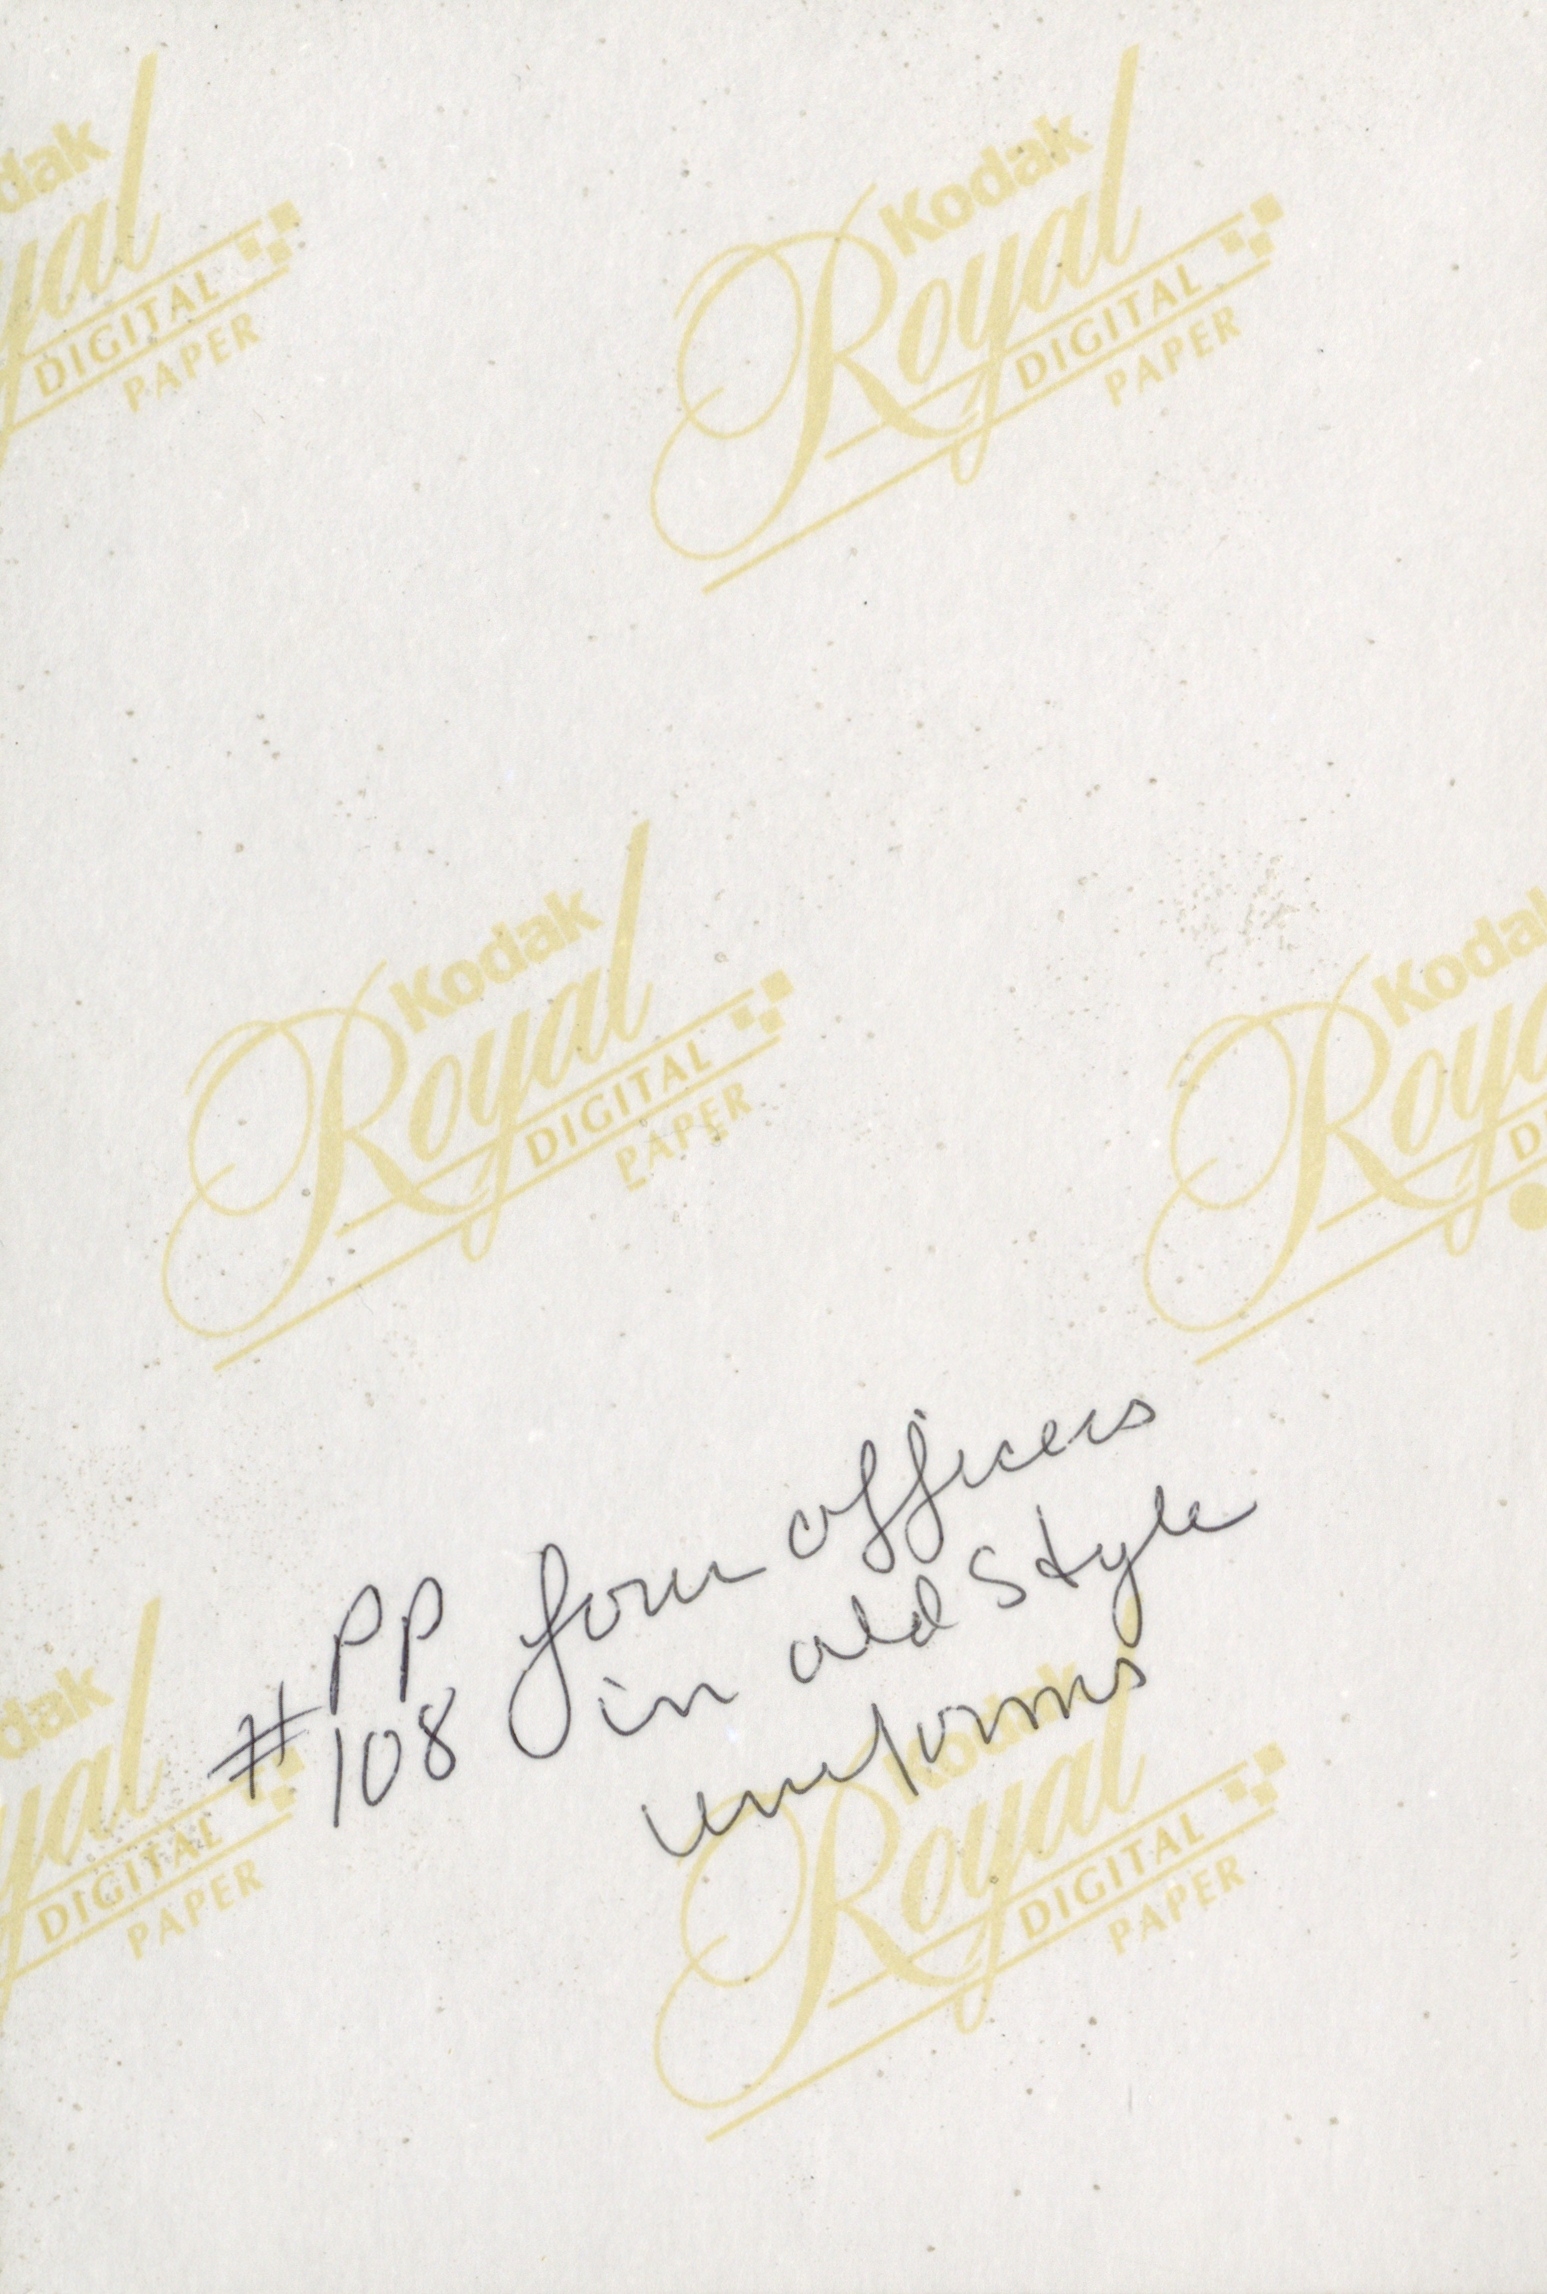 Kodak
Royal
DIGITAL
PAPER
dak
yal
DIGITAL
PAPER
Kodak
Royal
DIGITAL
PAPER
Koda
Roya
DI
PP four officers
#108 in old style
uniforms
dak
yal
DIGITAL
PAPER
Kodak
Royal
DIGITAL
PAPER